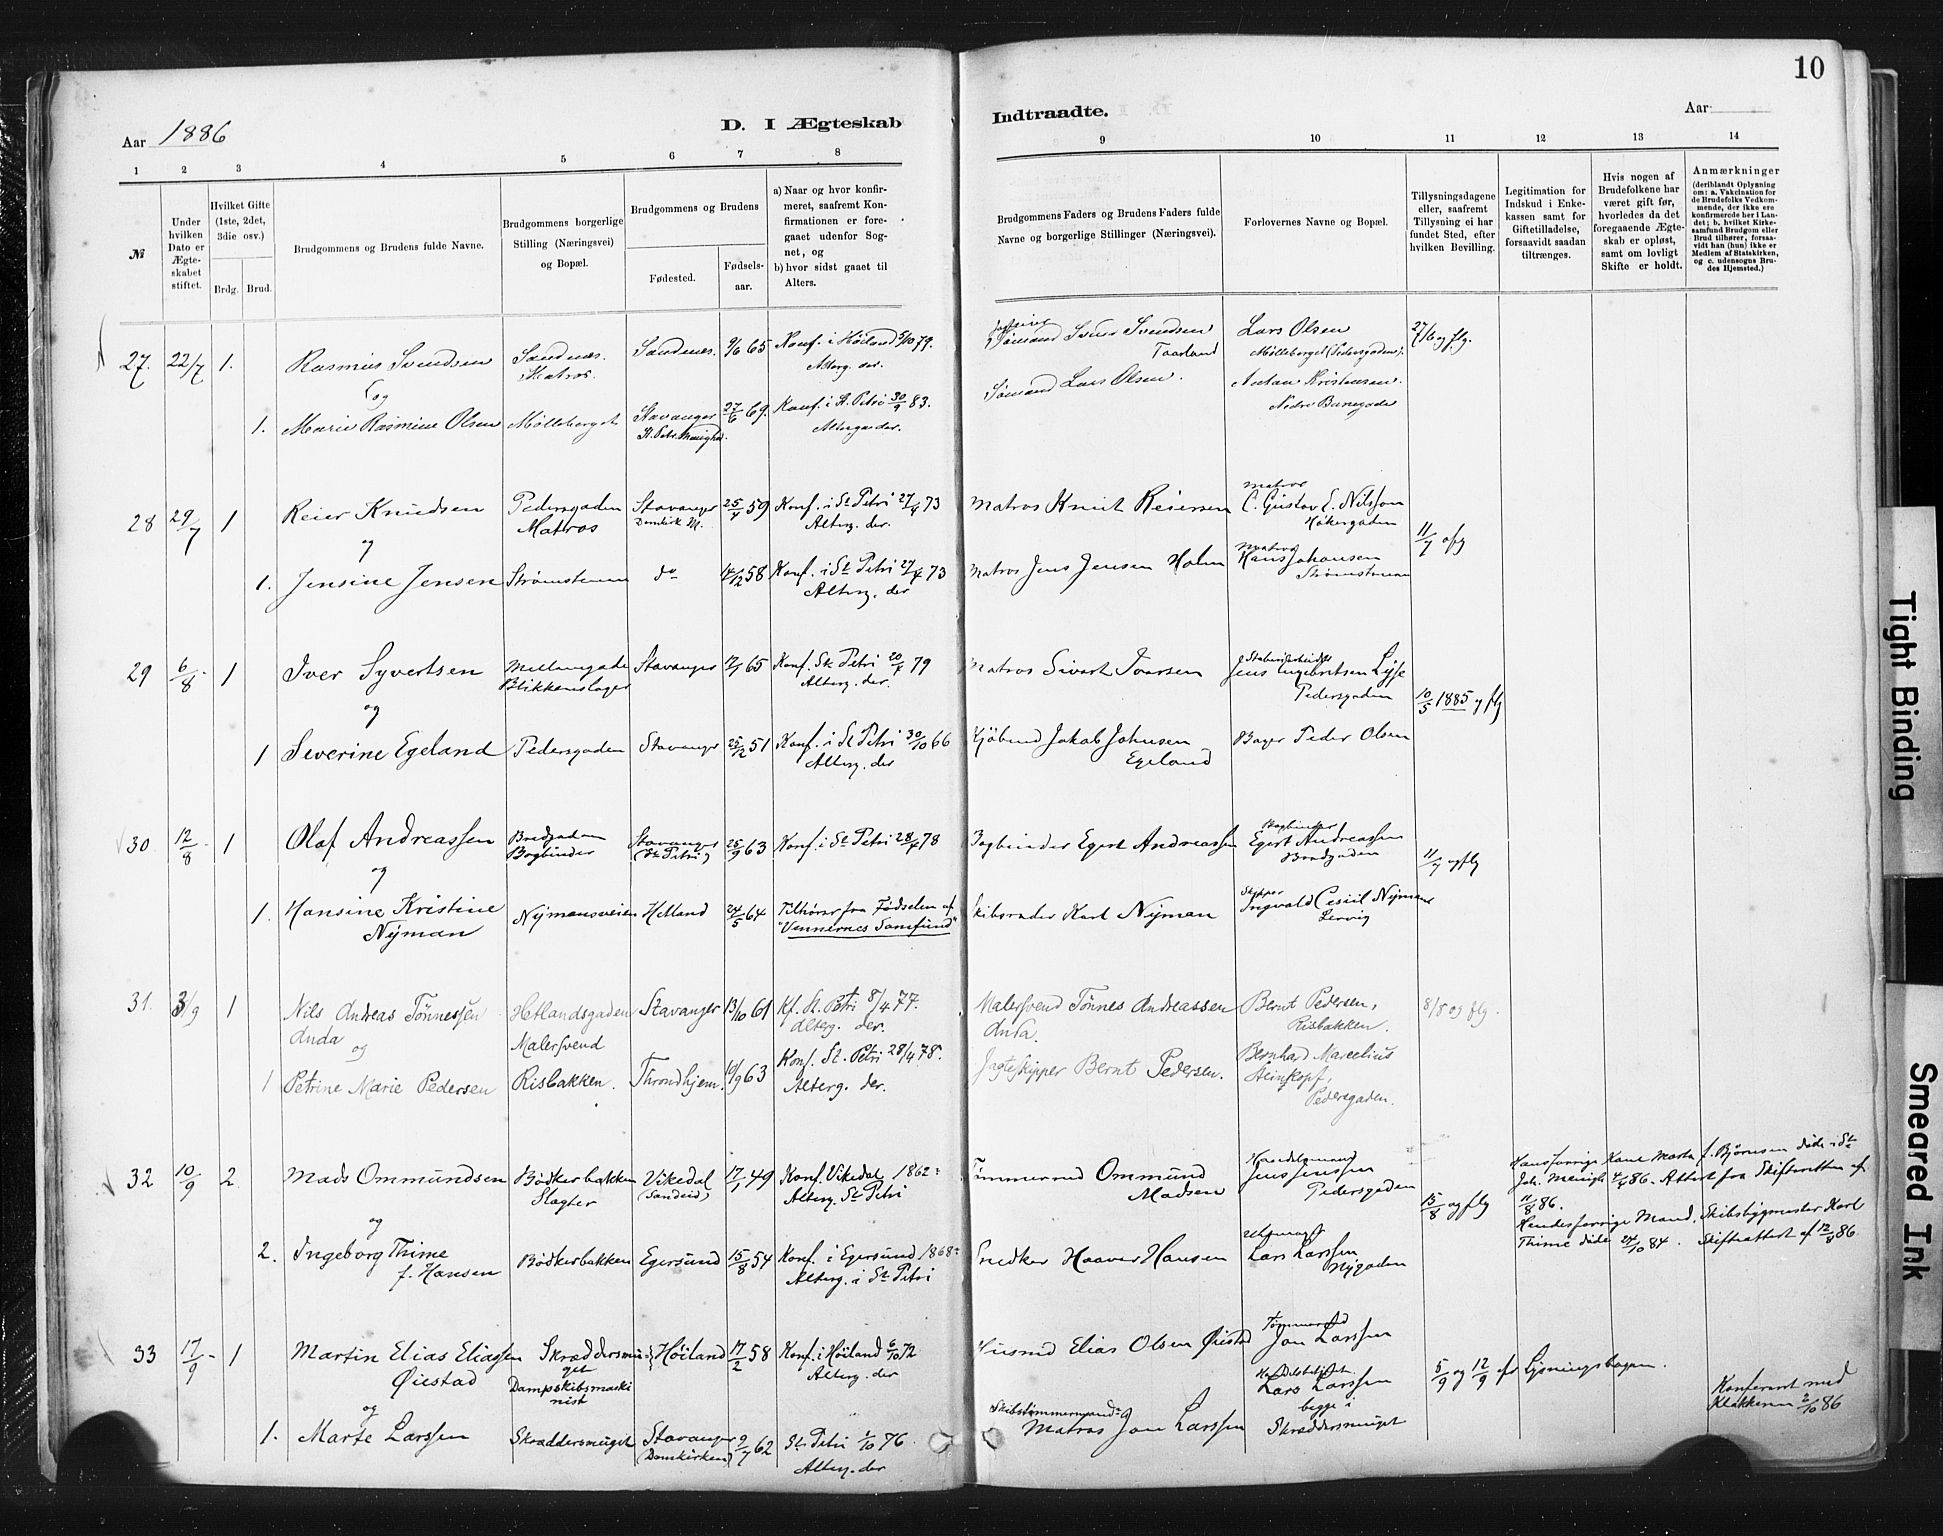 10
Aar 1886
D. I Ægteskab
Indtraadte.
Aar
1 2 3 4 5 6 7 8 9 10 11 12 13 14
№
Under hvilken Dato er Ægteskabet stiftet.
Hvilket Gifte (1ste, 2det, 3die osv.)
Brdg. Brud.
Brudgommens og Brudens fulde Navne.
Brudgommens borgerlige Stilling (Næringsvei) og Bopæl.
Brudgommens og Brudens
Fødested.
Fødselsaar.
a) Naar og hvor konfirmeret, saafremt Konfirmationen er foregaaet udenfor Sognet, og
b) hvor sidst gaaet til Alters.
Brudgommens Faders og Brudens Faders fulde Navne og borgerlige Stillinger (Næringsvei).
Forlovernes Navne og Bopæl.
Tillysningsdagene eller, saafremt Tillysning ei har fundet Sted, efter hvilken Bevilling.
Legitimation for Indskud i Enkekassen samt for Giftetilladelse, forsaavidt saadan tiltrænges.
Hvis nogen af Brudefolkene har været gift før, hvorledes da det foregaaende Ægteskab er opløst, samt om lovligt Skifte er holdt.
Anmærkninger
(deriblandt Oplysning om: a. Vakcination for Brudefolks Vedkommende, der ikke ere konfirmerede her i Landet; b. hvilket Kirkesamfund Brudgom eller Brud tilhører, forsaavidt han (hun) ikke er Medlem af Statskirken, og c. udensogns Brudes Hjemsted.)
27. 22/7 1. Rasmus Svendsen Sandnæs. Matros. Sandnæs. 9/6 65 Konf. i Høiland 5/10 79. Alterg. der.
Sømand Svend Svendsen Taarland
Lars Olsen Mølleberget (Pedersgaden).
27/6 og flg.
og
1. Marie Rasmine Olsen Mølleberget Stavanger St. Petri Menighed. 27/6 69. Konf. i St. Petri 30/9 83. Alterg. der.
Sømand Lars Olsen.
Nedre Banegade
28 29/7 1 Reier Knudsen Pedersgaden Matros Stavanger Domkirk M. 25/4 59 Konf. i St Petri 27/4 73 Alterg. der.
Matros Knut Reiersen
Matros C. Gustav E. Nilsson Høkergaden
11/7 ofg
og
1. Jensine Jensen Strømstenen do 14/12 58 Konf. i St Petri 27/4 73 Alterg. der
Matros Jens Jensen Holm
Matros Hans Johansen Strømstenen
29 6/8 1 Iver Syvertsen Mellemgade Blikkenslager Stavanger 17/1 65 Konf. St. Petri 20/4 79 Alterg. der.
Matros Sivert Ivarsen
Jens Ingebretsen Lyse Pedersgaden
10/5 1885 og flg
og
1 Severine Egeland Pedersgaden Stavanger 25/2 51 Konf. i St Petri 30/10 66 Alterg. der
Kjøbmd Jakob Johnsen Egeland
Bager Peder Olsen
30 12/8 1 Olaf Andreassen Bredgaden Bogbinder Stavanger (St. Petri) 25/9 63 Konf. i St Petri 28/4 78
Bogbinder Egert Andreassen
Bogbinder Egert Andreassen Bredgaden
11/7 og flg
og
1. Hansine Kristine Nyman Nymansveien Hetland 24/5 64 Tilhører fra Fødselen af "Vennernes Samfund"
Skibsreder Karl Nyman
Skipper Ingvald Cesiil Nyman Lervig
31. 3/9 1 Nils Andreas Tønnessen Anda Hetlandsgaden Malersvend Stavanger 13/10 61 Kf. St. Petri 8/4 77. Alterg. der.
Malersvend Tønnes Andreassen Anda.
Bernt Pedersen, Risbakken.
8/8 og flg.
og
1 Petrine Marie Pedersen Risbakken. Throndhjem. 10/9 63 Konf. St. Petri 28/4 78. Alterg. der.
Jagteskipper Bernt Pedersen.
Bernhard Marcelius Steinkopf, Pedersgaden.
32 10/9 2. Mads Ommundsen Bødkerbakken Slagter Vikedal (Sandeid) 17/1 49 Konf. Vikedal 1862: Alterg. St. Petri
Tømmermd Ommund Madsen
Handelsmand Jens Jenssen Pedersgaden
15/8 og flg
Hans forrige Kone Marta f. Bjørnsen døde i St. Joh. Menigh. 4/4 86. Attest fra Skifteretten af 11/8 86.
Hendes forrige Mand, Skibsbygmester Karl Thime døde 24/10 84. Skifteattest af 12/8 86
og
2. Ingeborg Thime f. Hansen Bødkerbakken Egersund 15/8 54 Konf. i Egersund 1868: Alterg. i St Petri
Snedker Haaver Hansen
Lars Larssen Nygaden
33 17/9 1 Martin Elias Eliassen Øiestad Skræddersmuget Dampskibsmaskinist Høiland 17/2 58 Konf. i Høiland 6/10 72 Alterg. der
Husmd Elias Olsen Øiestad
Tømmermd Jon Larssen
5/9 og 12/9 af Lysningsbogen.
og
1. Marte Larssen Skræddersmuget Stavanger (Domkirken) 9/7 62 St Petri 1/10 76. Alterg. der
Skibstømmermand og Matros Jon Larssen
Lars Larssen begge i Skræddersmuget
Konferert med Klokkeren 2/10 86
Tight Binding
Smeared Ink